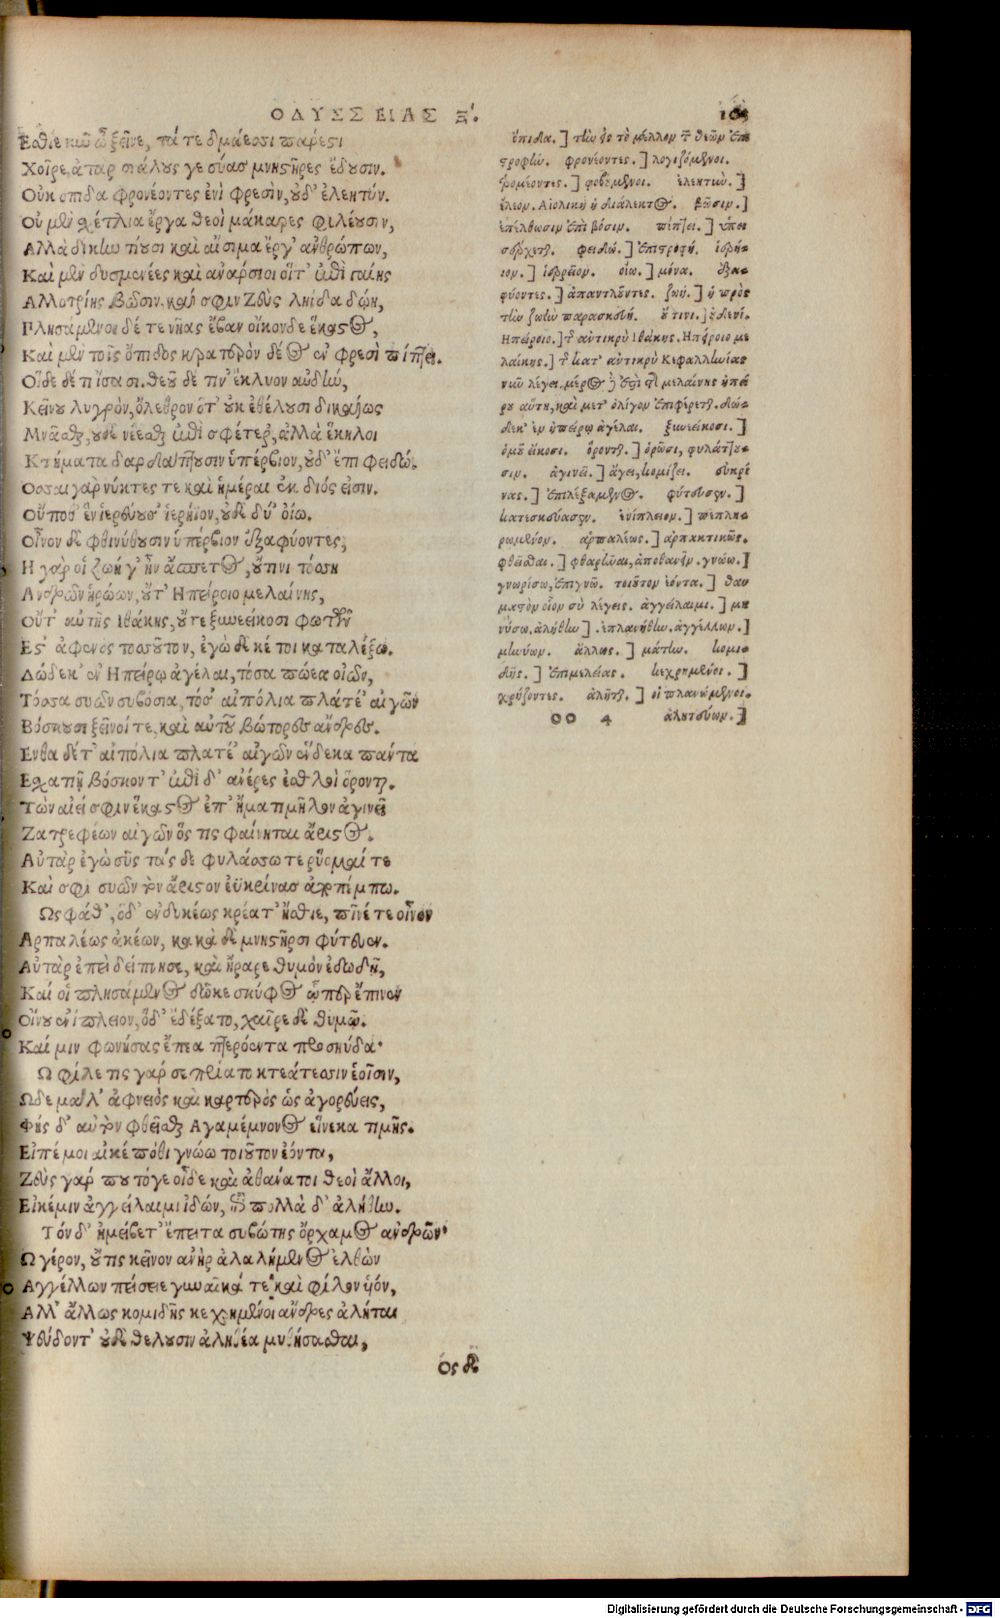 ΟΔΥΣΣΕΙΑΣ Ξ΄.
Εσθιε νιῦ ὦ ξεῖνε, τά τε δμώεσσι πάρεστι
Χοῖρε, ἀτὰρ σιάλους γε σύας μνηστῆρες ἔδουσιν.
Οὐκ ὄπιδα φρονέοντες ἐνὶ φρεσὶν, οὐδ' ἐλεητύν.
Οὐ μὲν σχέτλια ἔργα θεοὶ μάκαρες φιλέουσιν,
Αλλὰ δίκην τίουσι καὶ αἴσιμα ἔργ' ἀνθρώπων,
Καὶ μὲν δυσμενέες καὶ ἀνάρσιοι οἵτ' ἐπὶ γαίης
Αλλοτρίης βῶσιν. καί σφιν Ζεὺς ληίδα δώῃ,
Πλησάμενοι δέ τε νῆας ἔβαν οἶκονδε ἕκαστος,
Καὶ μὲν τοῖς ὄπιδος κρατερὸν δέος ἐν φρεσὶ πίπτει.
Οἵδε δέ τι ἴσασι. θεοῦ δέ τιν' ἔκλυον αὐδὴν,
Κείνου λυγρὸν, ὄλεθρον ὅτ' οὐκ ἐθέλουσι δικαίως
Μνᾶσθαι, οὐδὲ νέεσθαι ἐπὶ σφέτερ', ἀλλὰ ἕκηλοι
Κτήματα δαρδάπτουσιν ὑπέρβιον, οὐδ' ἔπι φειδώ.
Οσσαι γὰρ νύκτες τε καὶ ἡμέραι ἐκ διός εἰσιν.
Οὔποθ' ἓν ἱερεύουσ' ἱερήϊον, οὐδὲ δύ' οἴω.
Οἶνον δὲ φθινύθουσιν ὑπέρβιον ἐξαφύοντες,
Η γάρ οἱ ζωή γ' ἦν ἄσπετος, οὔτινι τόσση
Ανδρῶν ἡρώων, οὔτ' Ηπείροιο μελαίνης,
Οὔτ' αὐτῆς ἰθάκης, οὔτε ξυνεείκοσι φωτῶν
Εστ' ἄφενος τοσοῦτον, ἐγὼ δέ κέ τοι καταλέξω.
Δώδεκ' ἐν Ηπείρῳ ἀγέλαι, τόσα πώεα οἰῶν,
Τόσσα συῶν συβόσια, τόσ' αἰπόλια πλατέ' αἰγῶν
Βόσκουσι ξεῖνοί τε, καὶ αὐτοῦ βώτορες ἄνδρες.
Ενθα δέ τ' αἰπόλια πλατέ' αἰγῶν ἕνδεκα πάντα
Εσχατιῇ βόσκοντ' ἐπὶ δ' ἀνέρες ἐσθλοὶ ὄρονται.
Τῶν αἰεί σφιν ἕκαστος ἐπ' ἤματι μῆλον ἀγινεῖ
Ζατρεφέων αἰγῶν ὅς τις φαίνηται ἄριστος.
Αὐτὰρ ἐγὼ σῦς τάς δε φυλάσσω τε ῥύομαί τε
Καὶ σφι συῶν τὸν ἄριστον ἐϋκρίνας ἀποπέμπω.
Ως φάθ', ὁ δ' ἐνδυκέως κρέατ' ἤσθιε, πῖνέ τε οἶνον
Αρπαλέως ἀκέων, κακὰ δὲ μνηστῆρσι φύτευεν.
Αὐτὰρ ἐπεὶ δείπνησε, καὶ ἤραρε θυμὸν ἐδωδῇ,
Καί οἱ πλησάμενος δῶκε σκύφος ᾧπερ ἔπινεν
Οἴνου ἐνίπλειον, ὁ δ' ἐδέξατο, χαῖρε δὲ θυμῷ.
Καί μιν φωνήσας ἔπεα πτερόεντα προσηύδα·
Ω φίλε τίς γάρ σε πρίατο κτεάτεσσιν ἑοῖσιν,
Ωδε μάλ' ἀφνειὸς καὶ καρτερὸς ὡς ἀγορεύεις,
Φῂς δ' αὐτὸν φθεῖσθαι Αγαμέμνονος εἵνεκα τιμῆς.
Εἰπέ μοι αἴκέ ποθι γνώω τοιοῦτον ἐόντα,
Ζεὺς γάρ που τόγε οἶδε καὶ ἀθάνατοι θεοὶ ἄλλοι,
Εἰκέ μιν ἀγγείλαιμι ἰδών, ἐπὶ πολλὰ δ' ἀλήθην.
Τόν δ' ἠμείβετ' ἔπειτα συβώτης ὄρχαμος ἀνδρῶν·
Ω γέρον, οὔτις κεῖνον ἀνὴρ ἀλαλήμενος ἐλθὼν
Αγγέλλων πείσειε γυναῖκά τε καὶ φίλον υἱόν,
Αλλ' ἄλλως κομιδῆς κεχρημένοι ἄνδρες ἀλῆται
Ψεύδοντ' οὐδὲ θέλουσιν ἀληθέα μυθήσασθαι,
ὃς δὲ
ὄπιδα.] τὴν ἐς τὸ μέλλον τῶν θεῶν ἐπι
στροφήν. φρονέοντες.] λογιζόμενοι.
τρομέοντες.] φοβούμενοι. ἐλεητύν.]
ἔλεον. Αἰολικὴ ἡ διάλεκτος. βῶσιν.]
ἐπέλθωσιν ἐπὶ βόσιν. πίπτει.] ἐπει
σέρχεται. φειδώ.] ἐπιστροφή. ἱερή-
ιον.] ἱερεῖον. οἴω.] μόνα. ἐξα-
φύοντες.] ἀπαντλοῦντες. ζωή.] ἡ πρὸς
τὴν ζωὴν παρασκευή. οὔτινι.] οὐδενί.
Ηπείροιο.] τῆς ἀντικρὺ Ιθάκης. Ηπείροιο με
λαίνης.] τῆς κατ' ἀντικρὺ Κεφαλληνίας
ρου αὕτη, καὶ μετ' ὀλίγον ἐπιφέρεται. δώ-
δεκ' ἐν ἠπείρῳ ἀγέλαι. ξυνεείκοσι.]
ὁμοῦ εἴκοσι. ὄρονται.] ὁρῶσι, φυλάττου-
σιν. ἀγινεῖ.] ἄγει, κομίζει. εὐκρί
νας.] ἐπιλεξάμενος. φύτευεν.]
κατεσκεύασεν. ἐνίπλειον.] πεπλη-
ρωμένον. ἁρπαλέως.] ἁρπακτικῶς.
φθεῖσθαι.] φθαρῆναι, ἀποθανεῖν. γνώω.]
γνωρίσω, ἐπιγνῶ. τοιοῦτον ἐόντα.] θαυ
μαστὸν οἷον σὺ λέγεις. ἀγγείλαιμι.] μη
νύσω. ἀλήθην.] ἐπλανήθην. ἀγγέλλων.]
μηνύων. ἄλλως.] μάτην. κομι-
δῆς.] ἐπιμελείας. κεχρημένοι.]
χρῄζοντες. ἀλῆται.] οἱ πλανώμενοι.
οο 4 ἀλητεύων.]
Digitalisierung gefördert durch die Deutsche Forschungsgemeinschaft - DFG